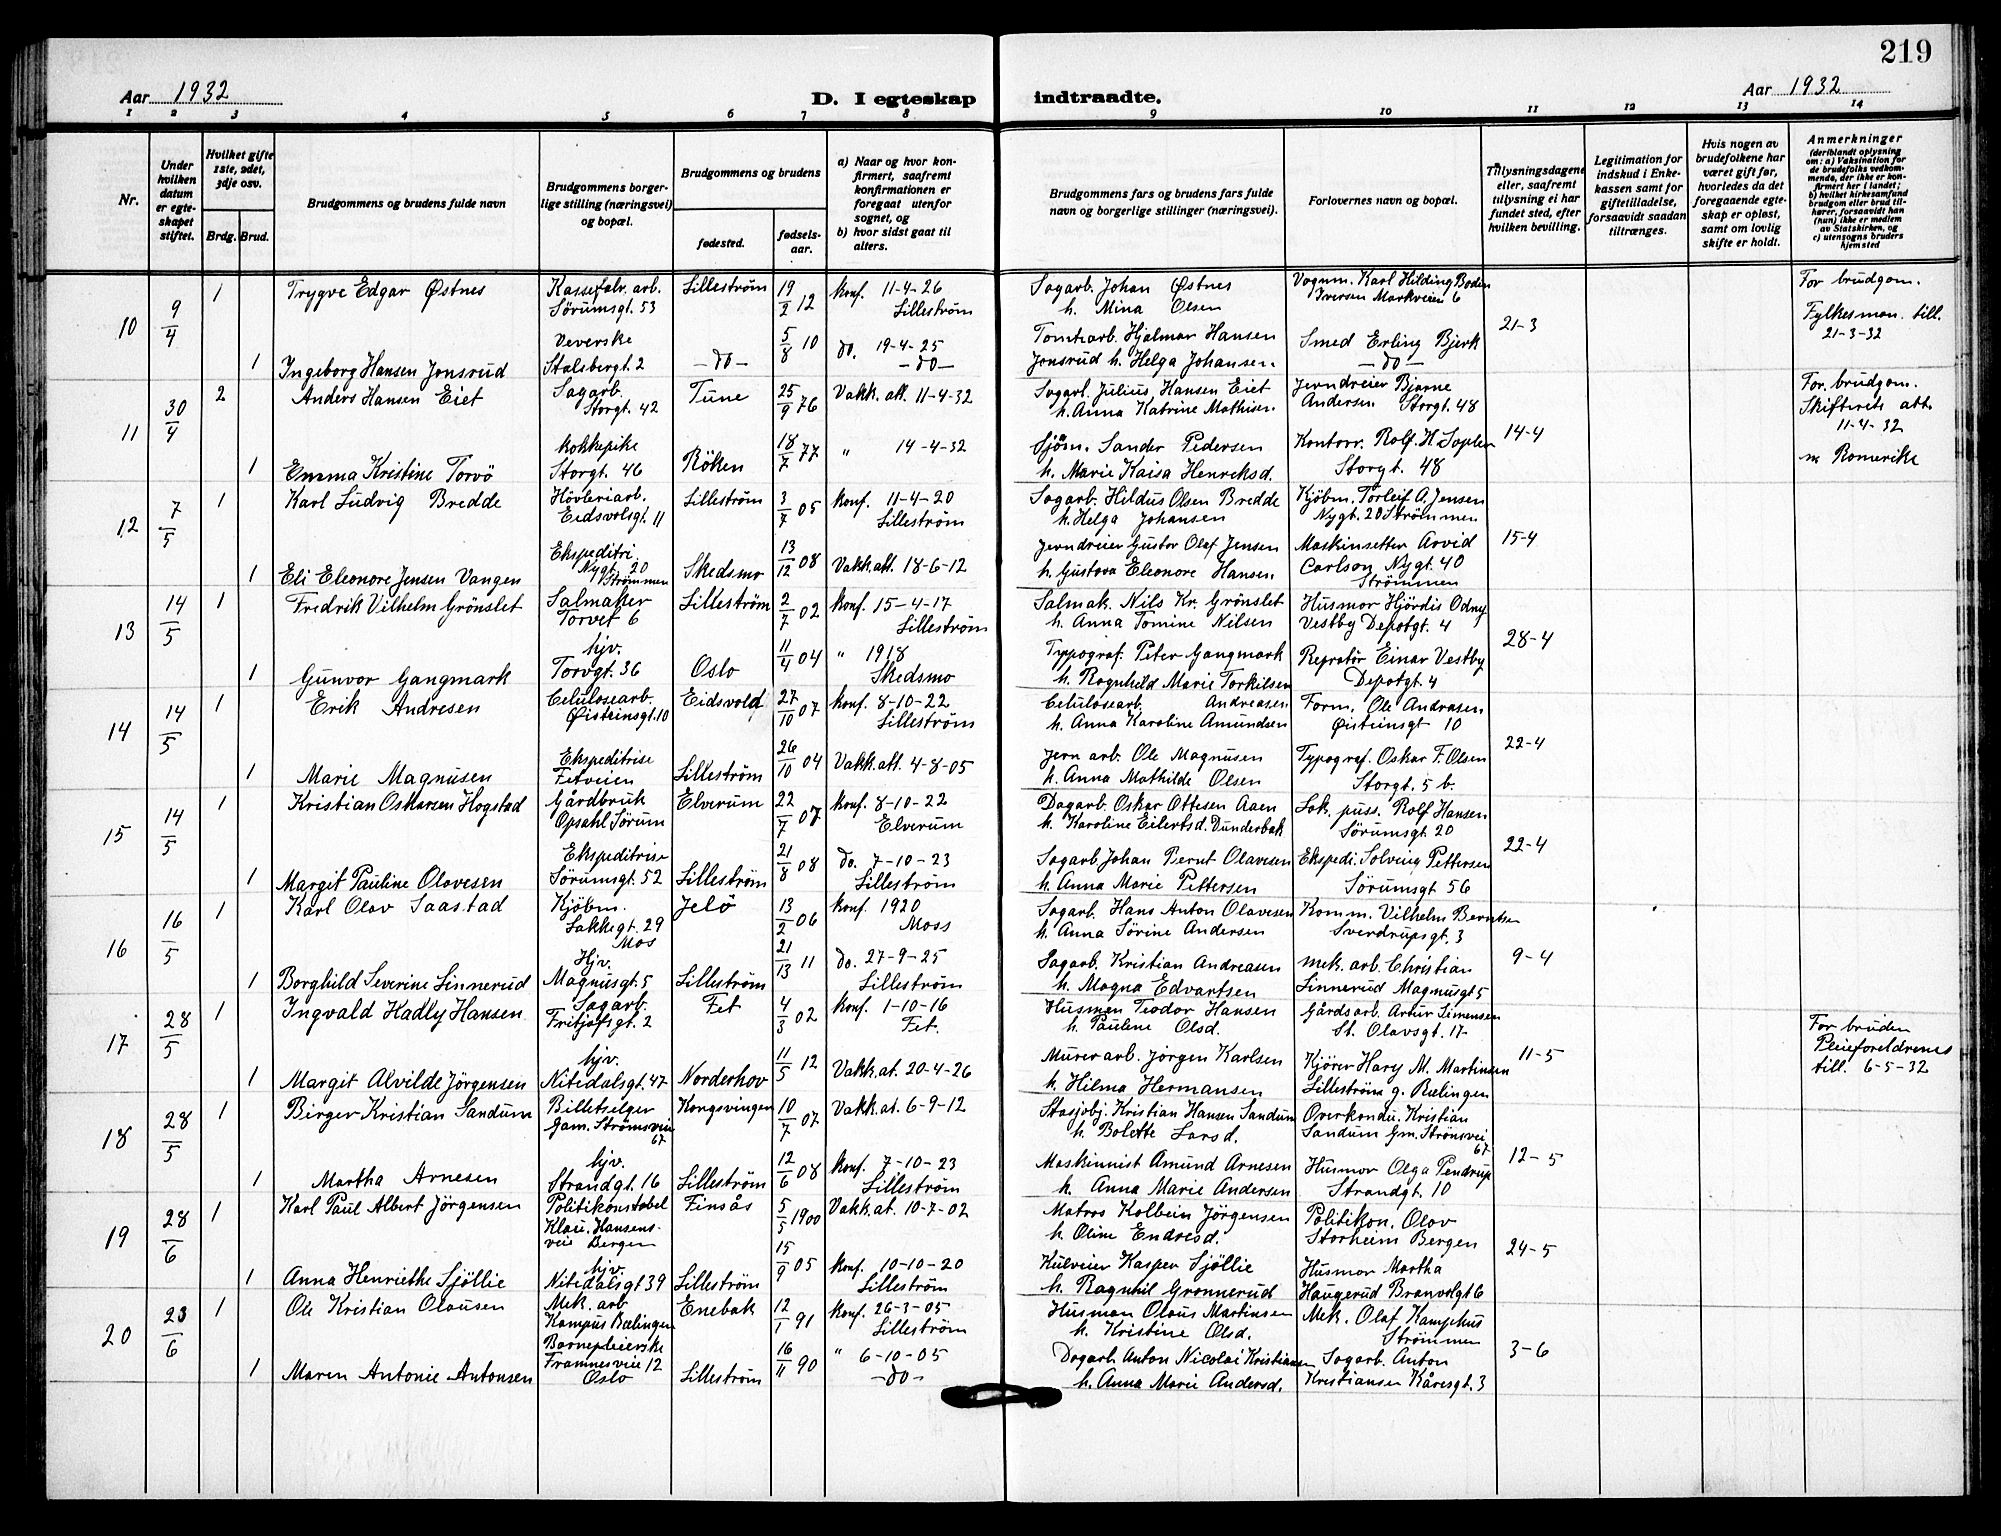 219
Aar 1932
D. I egteskap
indtraadte.
Aar 1932
1 2 3 4 5 6 7 8 9 10 11 12 13 14
Nr.
Under hvilken datum er egteskapet stiftet.
Hvilket gifte 1ste, 2det, 3dje osv.
Brdg. Brud.
Brudgommens og brudens fulde navn
Brudgommens borgerlige stilling (næringsvei) og bopæl.
Brudgommens og brudens
fødested.
fødselsaar.
a) Naar og hvor konfirmert, saafremt konfirmationen er foregaat utenfor sognet, og
b) hvor sidst gaat til alters.
Brudgommens fars og brudens fars fulde navn og borgerlige stillinger (næringsvei).
Forlovernes navn og bopæl.
Tillysningsdagene eller, saafremt tillysning ei har fundet sted, efter hvilken bevilling.
Legitimation for indskud i Enkekassen samt for giftetilladelse, forsaavidt saadan tiltrænges.
Hvis nogen av brudefolkene har været gift før, hvorledes da det foregaaende egteskap er opløst, samt om lovlig skifte er holdt.
Anmerkninger
(deriblandt oplysning om: a) Vaksination for de brudefolks vedkommende, der ikke er konfirmert her i landet; b) hvilket kirkesamfund brudgom eller brud tilhører, forsaavidt han (hun) ikke er medlem av Statskirken, og c) utensogns bruders hjemsted
10 9/4 1 Trygve Edgar Østnes Kassefabr. arb. Lilleström 19/2 12 konf. 11-4-26 Sagarb. Johan Østnes Vognm. Karl Hilding Boden For brudgom.
Sörumsgt. 53 Lilleström h. Mina Olsen Iversen Markveien 6 Fylkesman. till.
Veverske 5/8 10 do. 19-4-25 Tomtarb. Hjalmar Hansen Smed Erling Bjerk 21-3 21-3-32
1 Ingeborg Hansen Jonsrud Stalsbergt. 2 -do- -do- Jonsrud h. Helga Johansen -do-
11 30/4 2 Anders Hansen Eiet Sagarb. Tune 25/9 76 Vakk. att. 11-4-32 Sagarb. Julius Hansen Eiet Jerndreier Bjarne For brudgom.
Storgt. 42 h. Anna Katrine Mathisen Andersen Storgt. 48 Skifterets att.
kokkepike 18/7 77 " 14-4-32 Sjöm. Sander Pedersen Kontorr. Rolf H. 14-4 11-4-32
1 Emma Kristine Torvö Storgt. 46 Röken h. Marie Kaisa Henreksd. Storgt. 48 Romerike
12 7/5 1 Karl Ludvig Bredde Hövleriarb. Lilleström 3/7 05 konf. 11-4-20 Sagarb. Hildus Olsen Bredde Kjöbm. Torleif A. Jensen
Eidsvolsgt. 11 Lilleström h. Helga Johansen Nygt. 20 Strömmen
Ekspeditri. 13/12 08 Jerndreier Gustov Olaf Jensen Maskinsetter Arvid 15-4
1 Eli Eleonore Jensen Vangen Nygt. 20 Strömmen Skedsmo Vakk. att. 18-6-12 h. Gustava Eleonore Hansen Carlson Nygt. 40
Strömmen
13 14/5 1 Fredrik Vilhelm Grönslet Salmaker Lilleström 2/7 02 konf. 15-4-17 Salmak. Nils Kr. Grönslet Husmor Hjördis Odny
Torvet 6 Lilleström h. Anna Tomine Nilsen Vestby Depotgt. 4
hjv. 11/4 04 " 1918 Typograf. Peter Gangmark Repratör Einar Vestby 28-4
1 Gunvor Gangmark Torvgt. 36 Oslo Skedsmo h. Ragnhild Marie Torkilsen Depotgt. 4
14 14/5 1 Erik Andresen Celulosearb. Eidsvold 27/10 07 konf. 8-10-22 Celulosearb. Andreasen Form. Ole Andrasen
Øisteinsgt. 10 Lilleström h. Anna Karoline Amundsen Øisteinsgt 10
Ekspeditrise 26/10 04 Vakk. att. 4-8-05 Jern arb. Ole Magnusen Typograf. Oskar F. Olsen 22-4
1 Marie Magnusen Fetveien Lilleström h. Anna Mathilde Olsen Storgt. 5 b.
15 14/5 1 Kristian Oskarsen Hogstad Gårdbruk Elverum 22/7 07 konf. 8-10-22 Dagarb. Oskar Ottesen Aaen Lok. puss. Rolf Hansen
Opsahl Sörum Elverum h. Karoline Eilertsd. Dunderbak Sörumsgt. 20
Ekspeditrise 21/8 08 do. 7-10-23 Sagarb. Johan Bernt Olavesen Ekspedi. Solveig Pettersen 22-4
1 Margit Pauline Olavesen Sörumsgt. 52 Lilleström Lilleström h. Anna Marie Pettersen Sörumsgt 56
16 16/5 1 Karl Olav Saastad Kjöbm. Jelö 13/2 06 konf. 1920 Sagarb. Hans Anton Olavesen Komm. Vilhelm Berntsen
Lakkegt. 29 Mos Moss h. Anna Sörine Andersen Sverdrupsgt. 3
Hjv. 21/13 11 do. 27-9-25 Sagarb. Kristian Andreasen mek. arb. Christian 9-4
1 Borghild Severine Linnerud Magnusgt. 5 Lilleström Lilleström h. Magna Edvartsen Linnerud Magnusgt 5
17 28/5 1 Ingvald Hadly Hansen Sagarb. Fet 4/3 02 konf. 1-10-16 Husman Teodor Hansen Gårdsarb. Artur Simensen For bruden
Fritjofsgt. 2 Fet. h. Pauline Olsd. St. Olavsgt. 17 Pleieforeldrenes
hjv. 11/5 12 Vakk. at. 20-4-26 Murerarb. Jörgen Karlsen Kjörer Hary M. Martinsen 11-5 till. 6-5-32
1 Margit Alvilde Jörgensen Nitedalsgt. 47 Norderhov h. Hilma Hermansen Lilleström g. Rælingen
18 28/5 1 Birger Kristian Sandum Billetselger Kongsvingen 10/7 07 Vakk. at. 6-9-12 Stasjobj. Kristian Hansen Sandum Overkondu. Kristian
Gam. Strömsveie 67 h. Bolette Larsd. Sandum Gm. Strömsvei 67
hjv. 12/6 08 konf. 7-10-23 Maskinnist Amund Arnesen Husmor Olga Pendrup 12-5
1 Martha Arnesen Strandgt. 16 Lilleström Lilleström h. Anna Marie Andersen Strandgt. 10
19 28/6 1 Karl Paul Albert Jörgensen Politikonstabel Finsås 5/5 1900 Vakk. at. 10-7-02 Matros Kolbein Jörgensen Politikon. Olav
Klau. Hansensveie Bergen h. Oline Endresd. Storheim Bergen
hjv. 15/9 05 konf. 10-10-20 Hulveier Kasper Sjöllie Husmor Martha 24-5
1 Anna Henriethe Sjöllie Nitedalsgt 39 Lilleström Lilleström h. Ragnhil Gronnerud Haugerud Branvolgt 6
20 23/6 1 Ole Kristian Olausen Mek. arb Enebak 12/1 91 konf. 26-3-05 Husman Olaus Martinsen Mek. Olaf Kamphus
Kampus Rælingen Lilleström h. Kristine Olsd. Strömmen
Barnepleierske 16/11 90 " 6-10-05 Dagarb. Anton Nicolai Kristiansen Sagarb. Anton 3-6
1 Maren Antonie Antonsen Framnesveie 12 Oslo Lilleström -do- h. Anna Marie Andersd. Kristiansen Kåresgt. 3